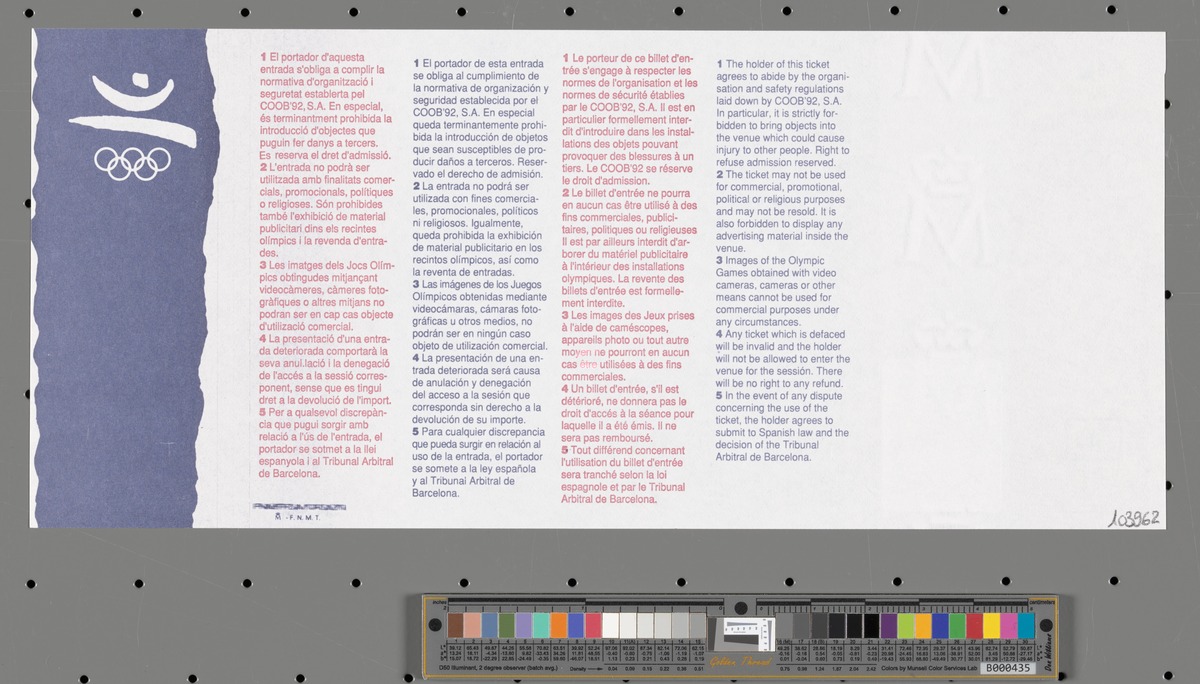 1 El portador d'aquesta
entrada s'obliga a complir la
normativa d'organització i
seguretat establerta pel
COOB'92, S.A. En especial,
és terminantment prohibida la
introducció d'objectes que
puguin fer danys a tercers.
Es reserva el dret d'admissió.
2 L'entrada no podrà ser
utilitzada amb finalitats comer-
cials, promocionals, polítiques
o religioses. Són prohibides
també l'exhibició de material
publicitari dins els recintes
olímpics i la revenda d'entra-
des.
3 Les imatges dels Jocs Olím-
pics obtingudes mitjançant
videocàmeres, càmeres foto-
gràfiques o altres mitjans no
podran ser en cap cas objecte
d'utilització comercial.
4 La presentació d'una entra-
da deteriorada comportarà la
seva anul.lació i la denegació
de l'accés a la sessió corres-
ponent, sense que es tingui
dret a la devolució de l'import.
5 Per a qualsevol discrepàn-
cia que pugui sorgir amb
relació a l'ús de l'entrada, el
portador se sotmet a la llei
espanyola i al Tribunal Arbitral
de Barcelona.
M -F.N.M.T.
1 El portador de esta entrada
se obliga al cumplimiento de
la normativa de organización y
seguridad establecida por el
COOB'92, S.A. En especial
queda terminantemente prohi-
bida la introducción de objetos
que sean susceptibles de pro-
ducir daños a terceros. Reser-
vado el derecho de admisión.
2 La entrada no podrá ser
utilizada con fines comercia-
les, promocionales, políticos
ni religiosos. Igualmente,
queda prohibida la exhibición
de material publicitario en los
recintos olímpicos, así como
la reventa de entradas.
3 Las imágenes de los Juegos
Olímpicos obtenidas mediante
videocámaras, cámaras foto-
gráficas u otros medios, no
podrán ser en ningún caso
objeto de utilización comercial.
4 La presentación de una en-
trada deteriorada será causa
de anulación y denegación
del acceso a la sesión que
corresponda sin derecho a la
devolución de su importe.
5 Para cualquier discrepancia
que pueda surgir en relación al
uso de la entrada, el portador
se somete a la ley española
y al Tribunal Arbitral de
Barcelona.
1 Le porteur de ce billet d'en-
trée s'engage à respecter les
normes de l'organisation et les
normes de sécurité établies
par le COOB'92, S.A. Il est en
particulier formellement inter-
dit d'introduire dans les instal-
lations des objets pouvant
provoquer des blessures à un
tiers. Le COOB'92 se réserve
le droit d'admission.
2 Le billet d'entrée ne pourra
en aucun cas être utilisé à des
fins commerciales, publici-
taires, politiques ou religieuses
Il est par ailleurs interdit d'ar-
borer du matériel publicitaire
à l'intérieur des installations
olympiques. La revente des
billets d'entrée est formelle-
ment interdite.
3 Les images des Jeux prises
à l'aide de caméscopes,
appareils photo ou tout autre
moyen ne pourront en aucun
cas être utilisées à des fins
commerciales.
4 Un billet d'entrée, s'il est
détérioré, ne donnera pas le
droit d'accés à la séance pour
laquelle il a été émis. Il ne
sera pas remboursé.
5 Tout différend concernant
l'utilisation du billet d'entrée
sera tranché selon la loi
espagnole et par le Tribunal
Arbitral de Barcelona.
1 The holder of this ticket
agrees to abide by the organi-
sation and safety regulations
laid down by COOB'92, S.A.
In particular, it is strictly for-
bidden to bring objects into
the venue which could cause
injury to other people. Right to
refuse admission reserved.
2 The ticket may not be used
for commercial, promotional,
political or religious purposes
and may not be resold. It is
also forbidden to display any
advertising material inside the
venue.
3 Images of the Olympic
Games obtained with video
cameras, cameras or other
means cannot be used for
commercial purposes under
any circumstances.
4 Any ticket which is defaced
will be invalid and the holder
will not be allowed to enter the
venue for the sessión. There
will be no right to any refund.
5 In the event of any dispute
concerning the use of the
ticket, the holder agrees to
submit to Spanish law and the
decision of the Tribunal
Arbitral de Barcelona.
103962
inches
centimeters
Golden Thread
D50 Illuminant, 2 degree observer
Colors by Munsell Color Services Lab
B000435